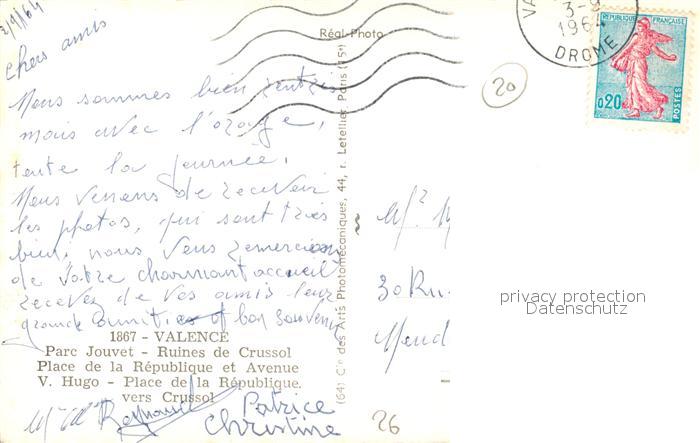 3/9/64
chers amis
Nous sommes bien rentrés
mais avec l'orage,
toute la journée.
Nous venons de recevoir
les photos, qui sont très
bien, nous vous remercions
de votre charmant accueil
recevez de vos amis leur
grande amitiés et bon souvenir
1867 - VALENCE
Parc Jouvet - Ruines de Crussol
Place de la République et Avenue
V. Hugo - Place de la République.
vers Crussol
Patrice
Christine
Réal-Photo
(64) Cie des Arts Photomécaniques, 44, r. Letellier Paris (15e)
3-9
1964
DROME
RÉPUBLIQUE FRANÇAISE
0,20
POSTES
20
Mr
30 Ru
privacy protection
Datenschutz
26